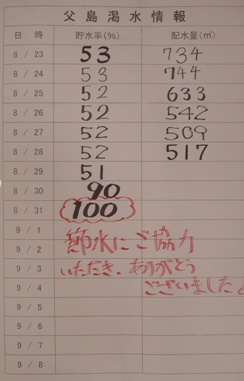 父島渇水情報
日 時 貯水率(%) 配水量(㎥)
8 / 23 53 734
8 / 24 53 744
8 / 25 52 633
8 / 26 52 542
8 / 27 52 509
8 / 28 52 517
8 / 29 51
8 / 30 90
8 / 31 100
9 / 1
9 / 2
9 / 3
9 / 4
9 / 5
9 / 6
9 / 7
9 / 8
節水にご協力
いただき、ありがとう
ございました。